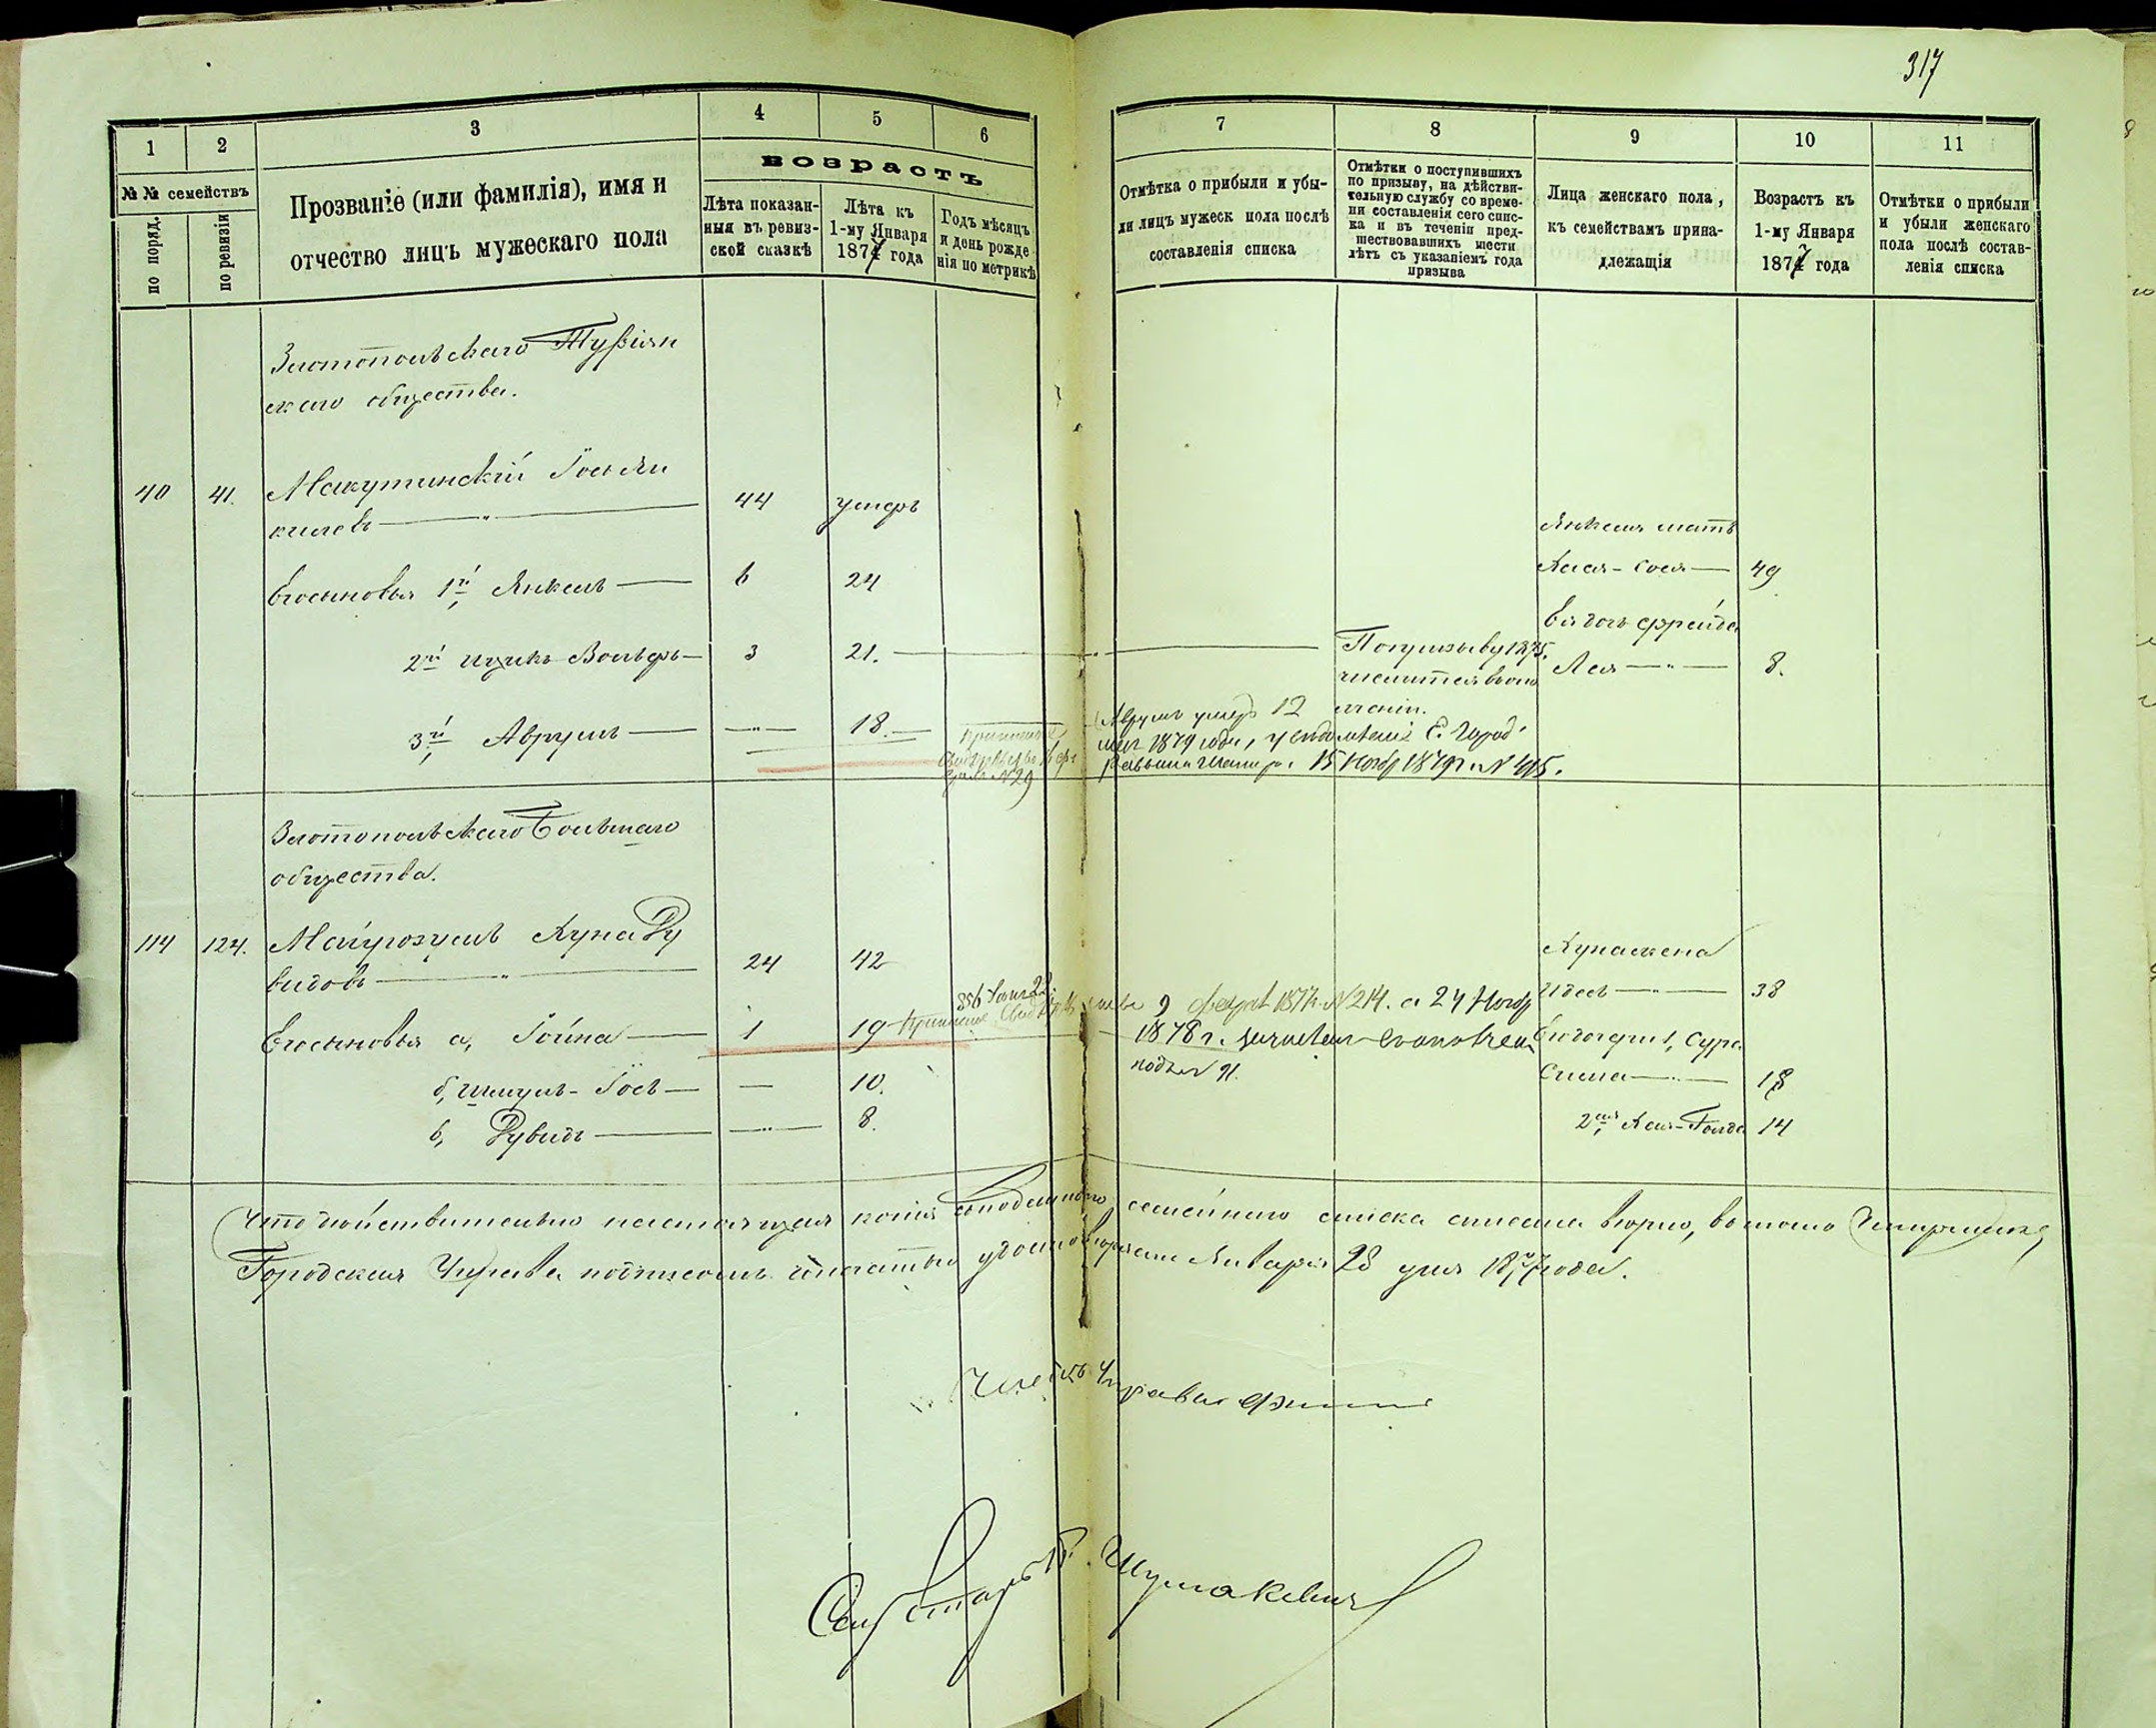 317
1
2
3
4
5
6
7
8
9
10
11
№№ семействъ
по поряд.
по ревизіи
Прозваніе (или фамилія), имя и
отчество лицъ мужескаго пола
возрастъ
Лѣта показан-
ныя въ ревиз-
ской сказкѣ
Лѣта къ
1-му Января
1877 года
Годъ мѣсяцъ
и день рожде
нія по метрикѣ
Отмѣтка о прибыли и убы-
ли лицъ мужеск пола послѣ
составленія списка
Отмѣтки о поступившихъ
по призыву, на дѣйстви-
тельную службу со време-
ни составленія сего спис-
ка и въ теченіи пред-
шествовавшихъ шести
лѣтъ съ указаніемъ года
призыва
Лица женскаго пола,
къ семействамъ прина-
длежащія
Возрастъ къ
1-му Января
1877 года
Отмѣтки о прибыли
и убыли женскаго
пола послѣ состав-
ленія списка
Златопольскаго
скаго общества.
40 41. Макутинскій Іось Ян
келевъ 44 умеръ
Янкеля мать
Хая-Сося 49
Егосыновья 1й Янкель 6 24
Его дочь Фрейда
Лея 8.
2й Ицикъ Вольфъ 3 21. По призыву 1875.
числится въ опо
лченіи.
3й Аврумъ 18.
Аврумъ умеръ 12
1879 года, Е. Город.
15 Ноябр 1879 г. № 415.
№ 29
Златопольскаго Большаго
общества.
114 124. Куна Ду
видовъ 24 42
Куна жена
Идесъ 38
Егосыновья а, Гойна 1 19
856 Янв 22.
9 Феврал 1877 г. № 214. а 24 Ноябр
1878 г.
подъ № 91.
Его дочери 1, Сура
Сима 18
б, Шмуль-Іось 10.
2ая Хая-Голда 14
в, Дувидъ 8.
Что дѣйствительно настоящая копія съ подлиннаго семейнаго списка списана вѣрно, въ томъ
Городская Управа подписомъ и печатью удостовѣряетъ Января 28 дня 1877 года.
Членъ Управы
Секретарь Шумакевичъ